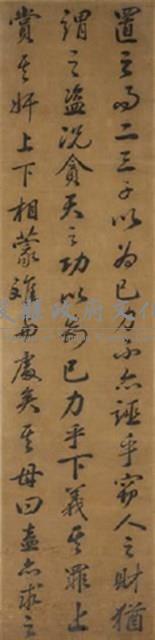 置之而二三子以為己力不亦誣乎竊人之財猶
謂之盜況貪天之功以為己力乎下義其罪上
賞其奸上下相蒙難與處矣其母曰盍亦求之
政府文化